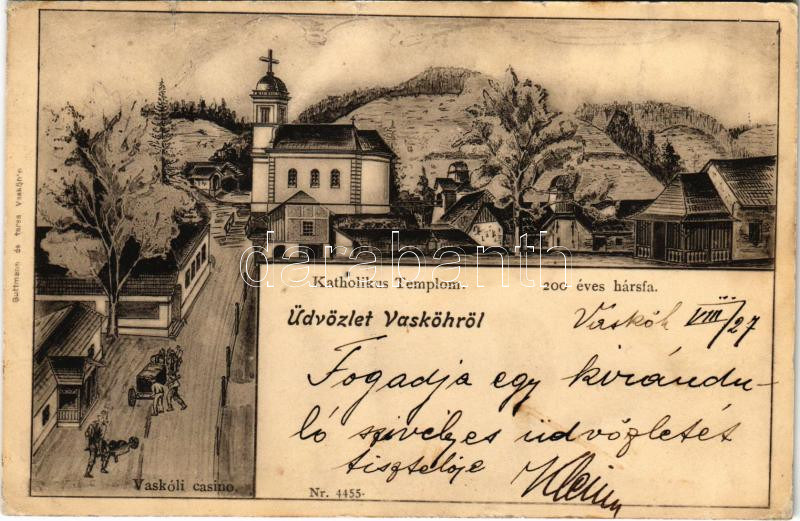 Guttmann és társa Vaskőh n
Katholikus Templom.
200 éves hársfa.
Üdvözlet Vaskőhről
Vaskőh VIII/27
Fogadja egy kirándu-
ló szivélyes üdvözletét
tisztelője Klein
Vaskóli casino.
Nr. 4455.
darabanth.com